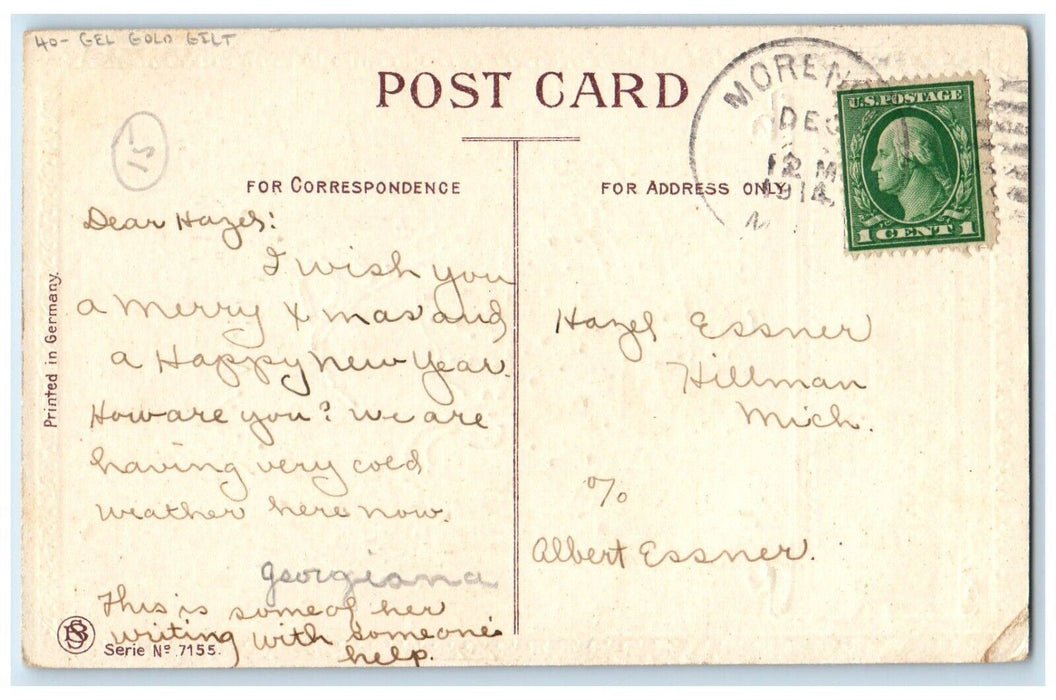 40- GEL GOLD GILT
15
POST CARD
FOR CORRESPONDENCE
FOR ADDRESS ONLY
MORENC
DEC
12 M
1914
M
U.S. POSTAGE
1 CENT 1
Dear Hazel:
I wish you
a merry Xmas and
a Happy New Year.
How are you? We are
having very cold
weather here now.
Georgiana
This is some of her
writing with someone's
help.
Hazel Essner
Hillman
Mich.
c/o
Albert Essner.
Printed in Germany.
Serie Nº 7155.